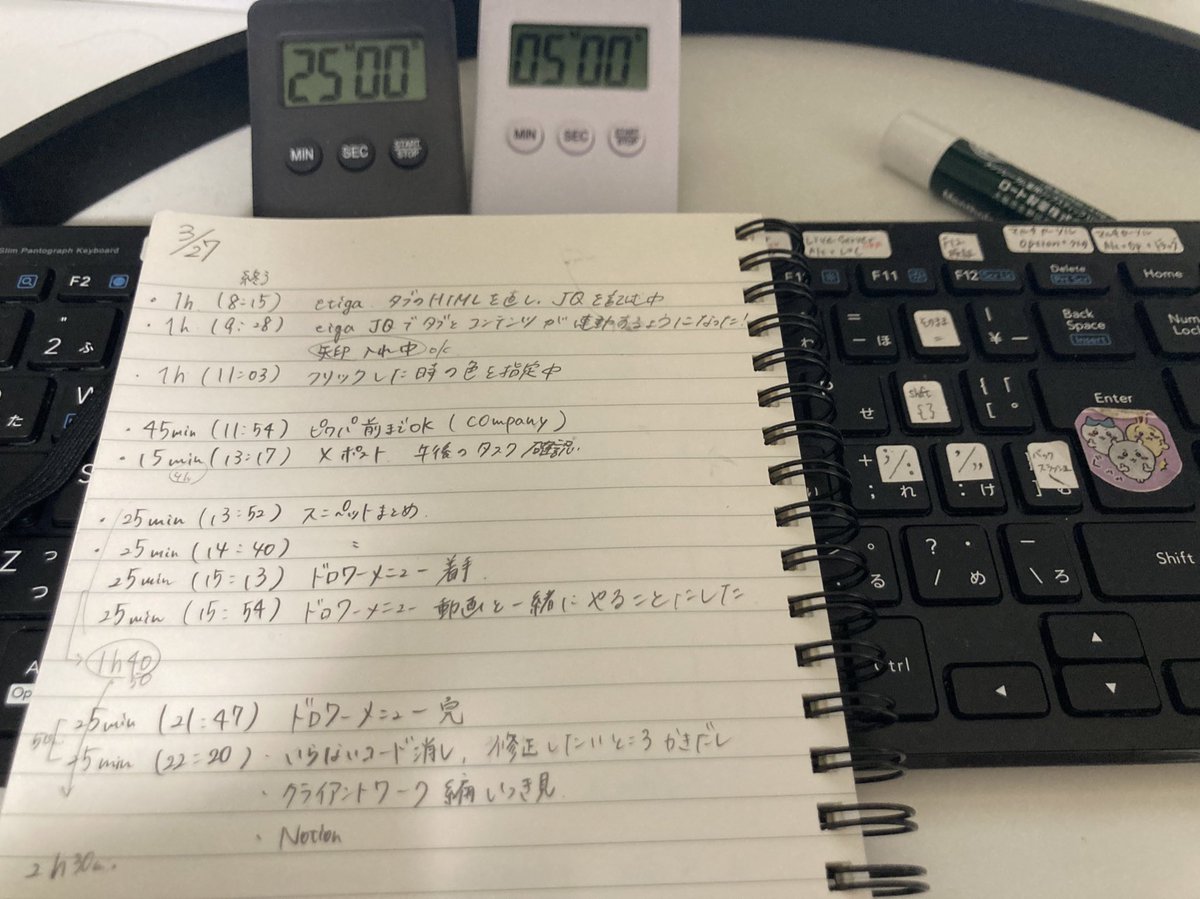 25M00S
MIN SEC START STOP
05M00S
MIN SEC START STOP
Slim Pantograph Keyboard
F2
2 ふ
W
た
S
Z つ
っ
A
Op
3/27
終了
・1h (8:15) etiga タブのHTMLを直し、JQを記述中
・1h (9:28) eiga JQでタブとコンテンツが連動するようになった!
矢印 入れ中 ok
・1h (11:03) クリックした時の色を指定中
・45min (11:54) ピクパ前までOK (company)
・15min (13:17) Xポスト 午後のタスク確認.
4h
・25min (13:52) スニペットまとめ
・25min (14:40) 〃
25min (15:13) ドロワーメニュー着手.
25min (15:54) ドロワーメニュー 動画と一緒にやることにした
→ 1h40
50
25min (21:47) ドロワーメニュー完
50
25min (22:20) ・いらないコード消し、修正したいところかきだし
・クライアントワーク編 いっき見
・Notion
2h30
Live Server
F11
F12
Delete
Home
マルチカーソル
Option+クリック
マルチカーソル
= − ほ
| ¥ ー
Back Space
Insert
Num Lo
せ
Shift {}
{ 「 [ ゜
Enter
+ ; れ
: け
バックスラッシュ
る
? ・ / め
_ \ ろ
Shift
Ctrl
▲
◀ ▼